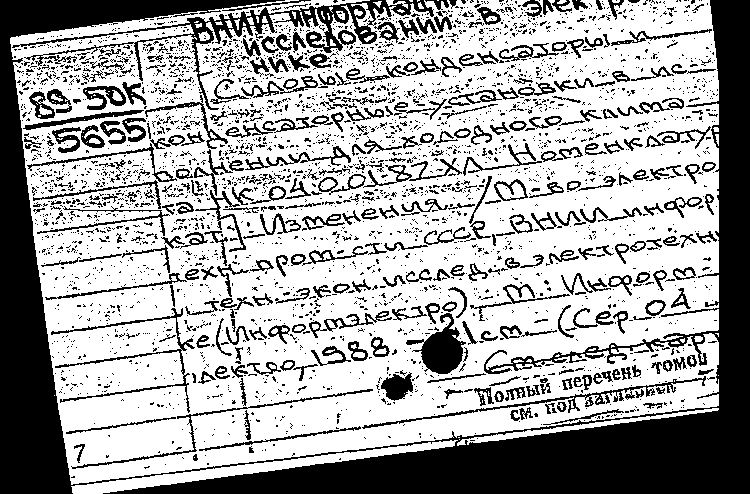 ВНИИ информаци
исследований в электро
нике
89-50К
5655
Силовые конденсаторы и
конденсаторные установки в ис-
полнении для холодного клима-
та НК 04.0.01.87-ХЛ: Номенклатур.
кат.]: Изменения... / М-во электро
техн. пром-сти СССР, ВНИИ информ
и техн.-экон. исслед. в электротехни
ке (Информэлектро). – М.: Информ-
электро, 1988. – 21 см. – (Сер 04
См. след. карт
Полный перечень томов
см. под заглавием
7